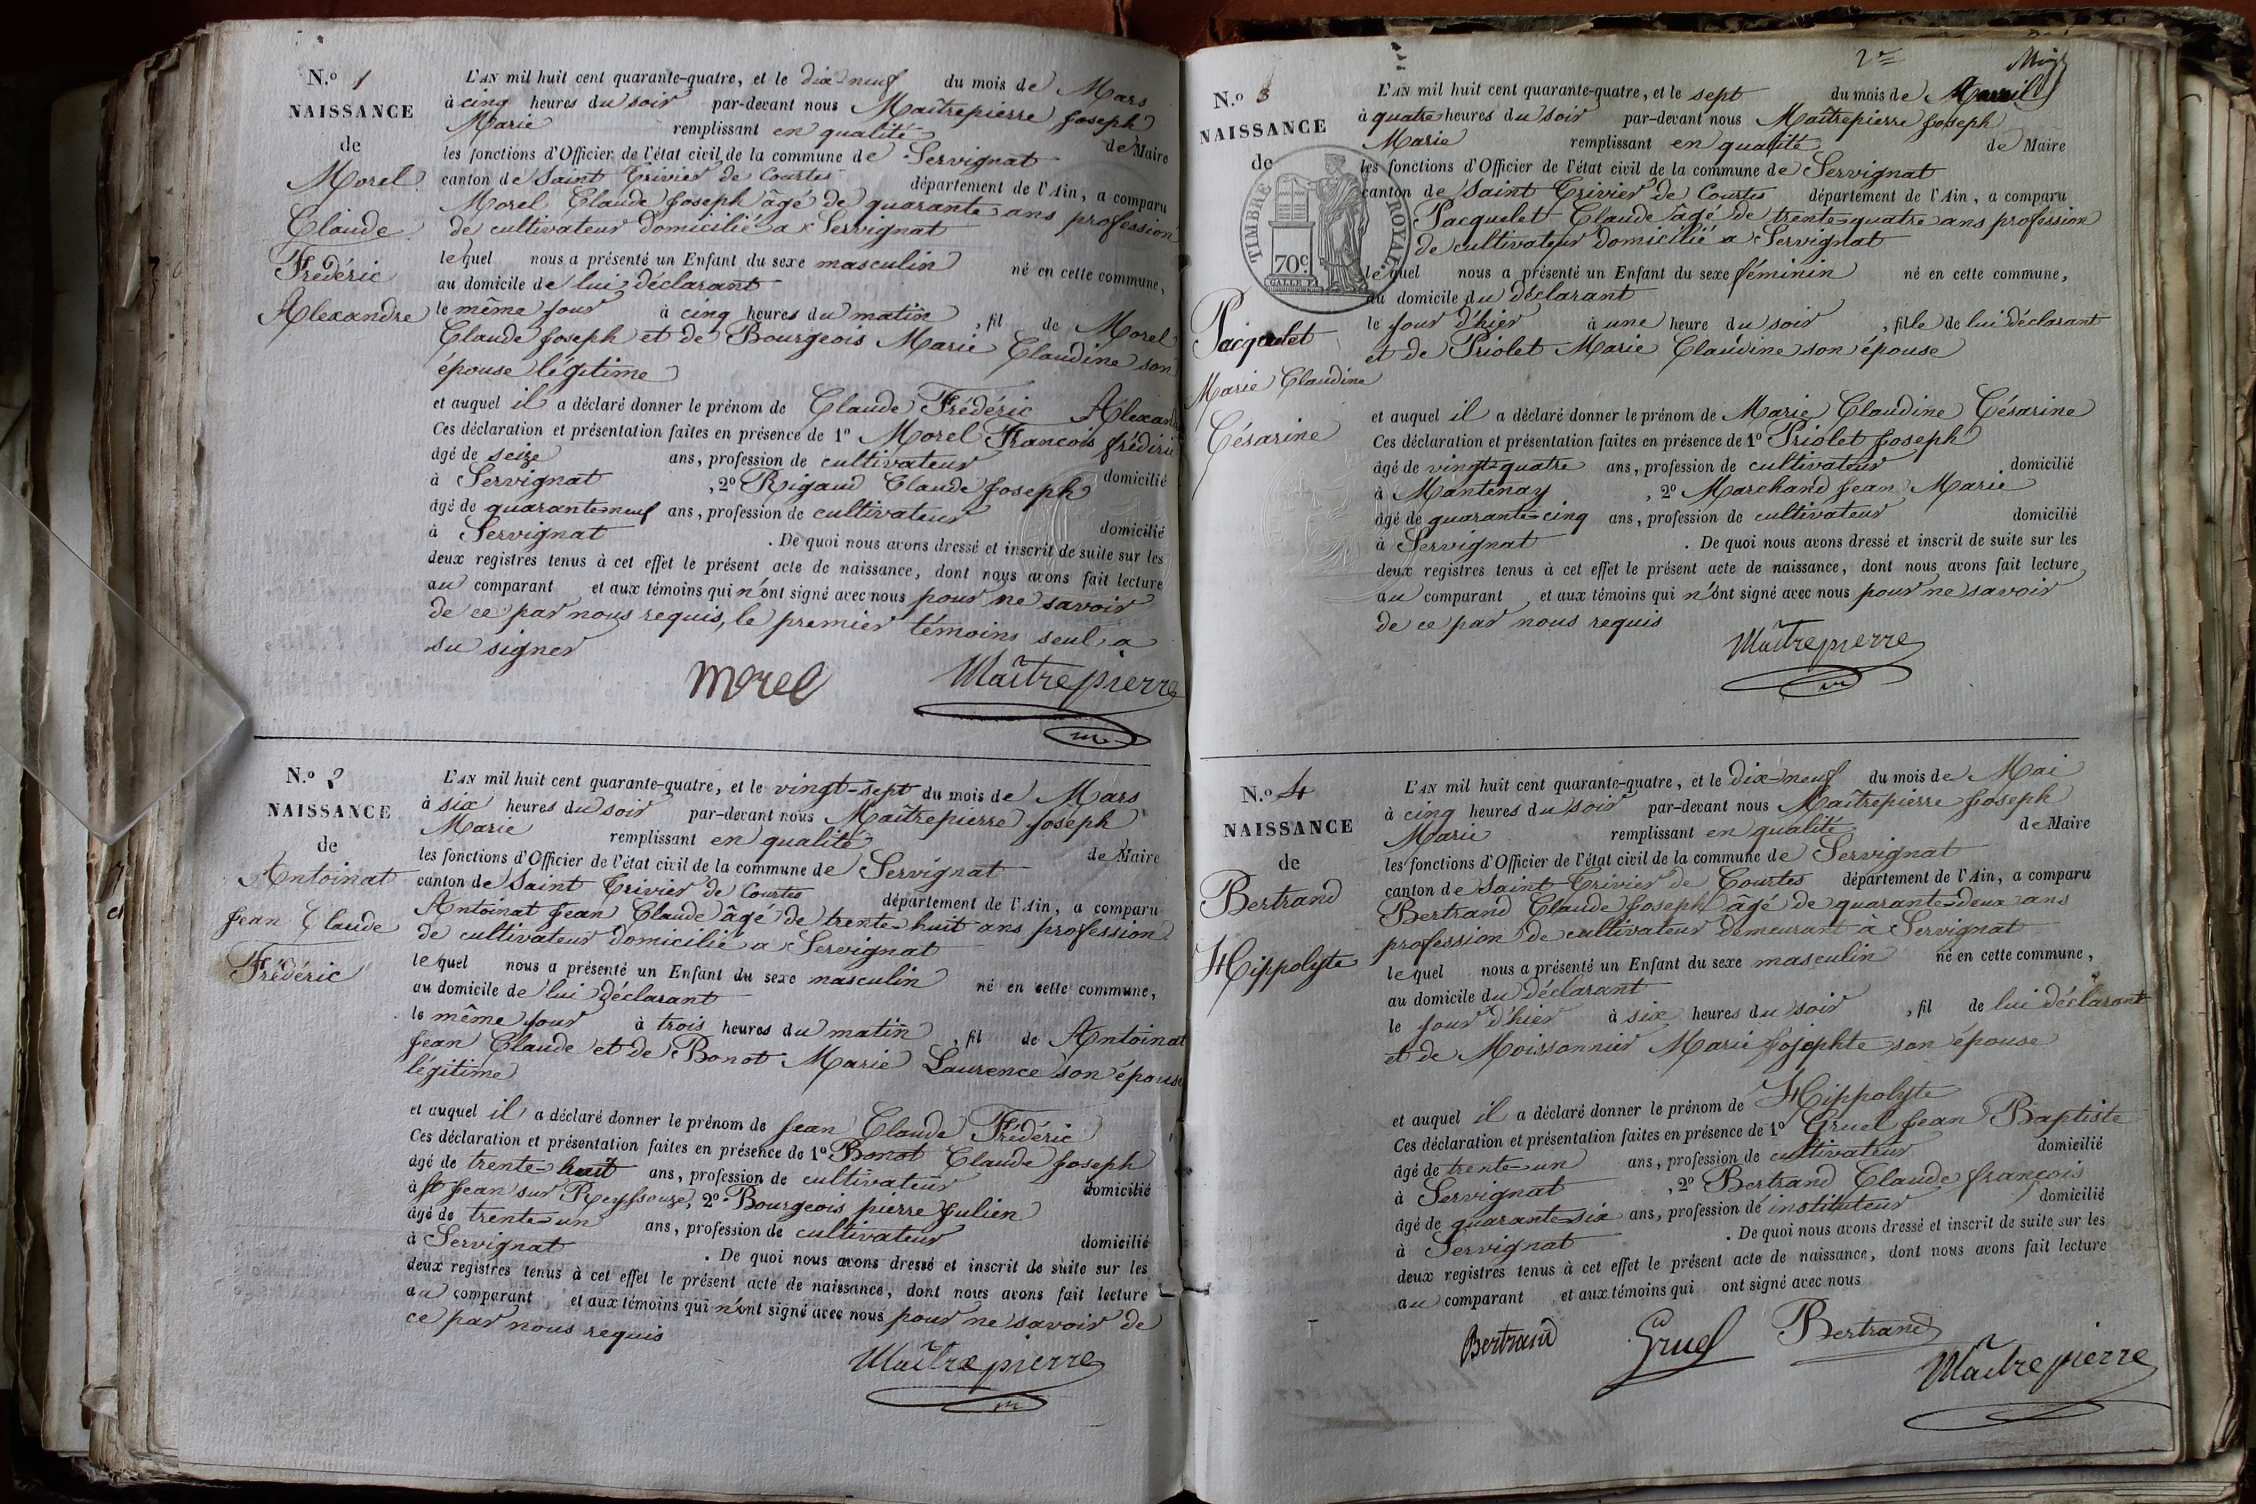 N.º 1
NAISSANCE
de
Morel
Claude
Frédéric
Alexandre
L'AN mil huit cent quarante-quatre, et le dix-neuf du mois de Mars
à cinq heures du soir par-devant nous Maîtrepierre Joseph
Marie remplissant en qualité de Maire
les fonctions d'Officier de l'état civil de la commune de Servignat
canton de Saint Trivier de Courtes département de l'Ain, a comparu
Morel Claude Joseph âgé de quarante ans profession
de cultivateur domicilié a Servignat
lequel nous a présenté un Enfant du sexe masculin né en cette commune,
au domicile de lui déclarant
le même jour à cinq heures du matin, fil de Morel
Claude Joseph et de Bourgeois Marie Claudine son
épouse légitime
et auquel il a déclaré donner le prénom de Claude Frédéric Alexandre
Ces déclaration et présentation faites en présence de 1º Morel François frédéric
âgé de seize ans, profession de cultivateur domicilié
à Servignat, 2º Rigaud Claude Joseph
âgé de quarante-neuf ans, profession de cultivateur domicilié
à Servignat. De quoi nous avons dressé et inscrit de suite sur les
deux registres tenus à cet effet le présent acte de naissance, dont nous avons fait lecture
au comparant et aux témoins qui n'ont signé avec nous pour ne savoir
de ce par nous requis, le premier témoins seul a
su signer
Morel Maîtrepierre
N.º 2
NAISSANCE
de
Antoinat
Jean Claude
Frédéric
L'AN mil huit cent quarante-quatre, et le vingt-sept du mois de Mars
à six heures du soir par-devant nous Maîtrepierre Joseph
Marie remplissant en qualité de Maire
les fonctions d'Officier de l'état civil de la commune de Servignat
canton de Saint Trivier de Courtes département de l'Ain, a comparu
Antoinat Jean Claude âgé de trente-huit ans profession
de cultivateur domicilié a Servignat
lequel nous a présenté un Enfant du sexe masculin né en cette commune,
au domicile de lui déclarant
le même jour à trois heures du matin, fil de Antoinat
Jean Claude et de Bonot Marie Laurence son épouse
légitime
et auquel il a déclaré donner le prénom de Jean Claude Frédéric
Ces déclaration et présentation faites en présence de 1º Bonot Claude Joseph
âgé de trente-huit ans, profession de cultivateur domicilié
à St Jean sur Reyssouze, 2º Bourgeois pierre Julien
âgé de trente-un ans, profession de cultivateur domicilié
à Servignat. De quoi nous avons dressé et inscrit de suite sur les
deux registres tenus à cet effet le présent acte de naissance, dont nous avons fait lecture
au comparant, et aux témoins qui n'ont signé avec nous pour ne savoir de
ce par nous requis
Maîtrepierre
2e
N.º 3
NAISSANCE
de
TIMBRE ROYAL
70c
Pacquelet
Marie Claudine
Césarine
L'AN mil huit cent quarante-quatre, et le sept du mois de Avril
à quatre heures du soir par-devant nous Maîtrepierre Joseph
Marie remplissant en qualité de Maire
les fonctions d'Officier de l'état civil de la commune de Servignat
canton de Saint Trivier de Courtes département de l'Ain, a comparu
Pacquelet Claude âgé de trente-quatre ans profession
de cultivateur domicilié a Servignat
lequel nous a présenté un Enfant du sexe féminin né en cette commune,
au domicile du déclarant
le jour d'hier à une heure du soir, fille de lui déclarant
et de Priolet Marie Claudine son épouse
et auquel il a déclaré donner le prénom de Marie Claudine Césarine
Ces déclaration et présentation faites en présence de 1º Priolet Joseph
âgé de vingt-quatre ans, profession de cultivateur domicilié
à Mantenay, 2º Marchand Jean Marie
âgé de quarante-cinq ans, profession de cultivateur domicilié
à Servignat. De quoi nous avons dressé et inscrit de suite sur les
deux registres tenus à cet effet le présent acte de naissance, dont nous avons fait lecture
au comparant, et aux témoins qui n'ont signé avec nous pour ne savoir
de ce par nous requis
Maîtrepierre
N.º 4
NAISSANCE
de
Bertrand
Hippolyte
L'AN mil huit cent quarante-quatre, et le dix-neuf du mois de Mai
à cinq heures du soir par-devant nous Maîtrepierre Joseph
Marie remplissant en qualité de Maire
les fonctions d'Officier de l'état civil de la commune de Servignat
canton de Saint-Trivier de Courtes département de l'Ain, a comparu
Bertrand Claude Joseph âgé de quarante-deux ans
profession de cultivateur demeurant à Servignat
lequel nous a présenté un Enfant du sexe masculin né en cette commune,
au domicile du déclarant
le jour d'hier à six heures du soir, fil de lui déclarant
et de Moissonnier Marie Jojephte son épouse
et auquel il a déclaré donner le prénom de Hippolyte
Ces déclaration et présentation faites en présence de 1º Gruel Jean Baptiste
âgé de trente-un ans, profession de cultivateur domicilié
à Servignat, 2º Bertrand Claude françois
âgé de quarante-six ans, profession de instituteur domicilié
à Servignat. De quoi nous avons dressé et inscrit de suite sur les
deux registres tenus à cet effet le présent acte de naissance, dont nous avons fait lecture
au comparant, et aux témoins qui ont signé avec nous
Bertrand Gruel Bertrand
Maîtrepierre